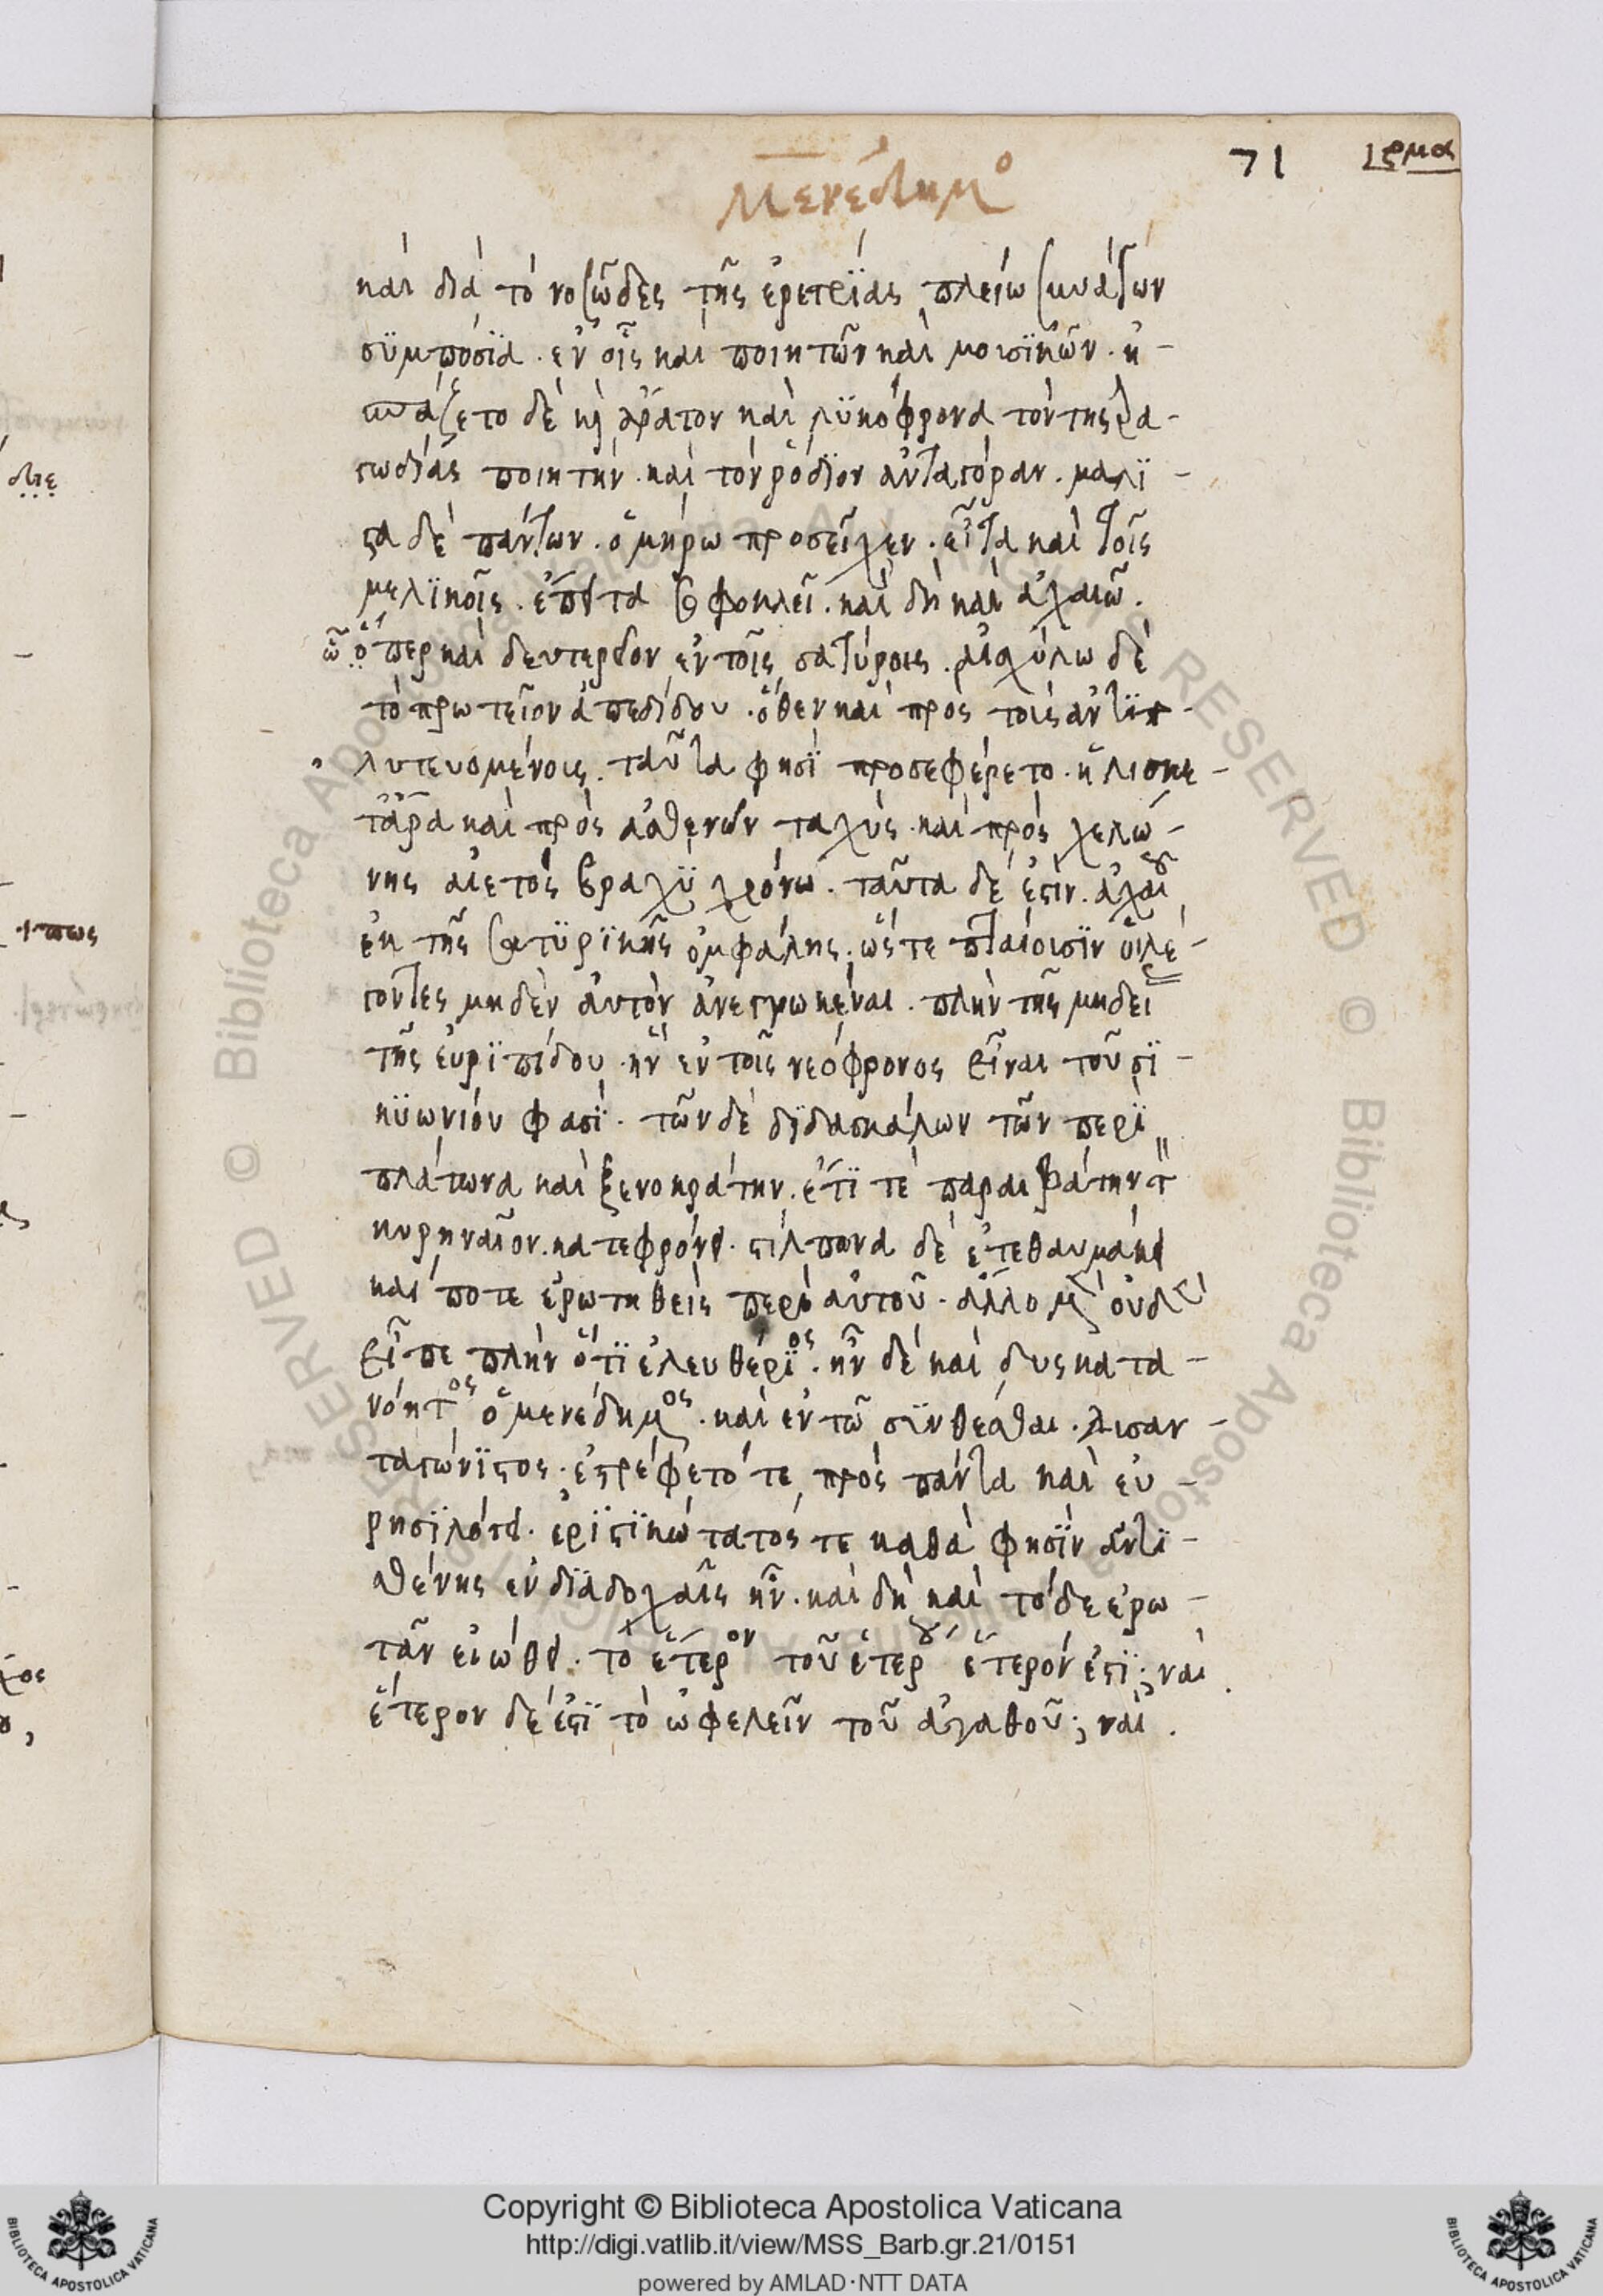 Μενέδημο
71 ιςμα
καὶ διὰ τὸ νοσῶδες τῆς ἐρετρϊάς πλείω συνάγων
σϋμπόσϊα. ἐν οἷς καὶ ποιητῶν καὶ μουσϊκῶν. ἠ-
σπάζετο δὲ κὶ ἄρατον καὶ λϋκόφρονα τὸν τῆς ρα-
γωδίας ποιητὴν. καὶ τὸν ῥόδϊον ἀνταγόραν. μαλϊ-
στα δὲ πάντων. ὁμήρω προσεῖχεν. εἶτα καὶ τοῖς
μελϊκοῖς. ἔπειτα σοφοκλεῖ. καὶ δὴ καὶ ἀχαιῶ.
ὧ ὅπερ καὶ δευτερεῖον ἐν τοῖς σατύροις. αἰσχύλω δὲ
τὸ πρωτεῖον ἀπεδίδου. ὅθεν καὶ πρὸς τοὺς ἀντϊπ-
λυτευομένους. ταῦτα φησϊ προσεφέρετο. ἡλίσκε-
τἄρα καὶ πρὸς ἀσθενῶν ταχὺς. καὶ πρὸς χελώ-
νης αἰετὸς βραχϋ χρόνω. ταῦτα δέ ἐστιν. ἀχαιοῦ
ἐκ τῆς σατϋρϊκῆς ὀμφάλης. ὥστε πταίουσϊν οἱ λέ-
γοντες μηδὲν ἀυτὸν ἀνεγνωκέναι. πλὴν τῆς μηδεί
τῆς ἐυρϊπίδου. ἣν ἐν τοῖς νεόφρονος εἶναι τοῦ σϊ-
κϋωνίου φασϊ. τῶν δὲ δϊδασκάλων τῶν περὶ
πλάτωνα καὶ ξενοκράτην. ἔτϊ τὲ παραιβάτην τ
κυρηναῖον. κατεφρόνει. στίλπωνα δὲ ἐτεθαυμάκει
καί ποτε ἐρωτηθεὶς περὶ ἀυτοῦ. ἄλλο μ ὀυδε
εἶπε πλὴν ὅτϊ ἐλευθέρϊος. ἦν δὲ καὶ δυςκατα-
νόητος ὁ μενέδημος. καὶ ἐν τῶ σϊνθέσθαι. δυσαν-
ταγώνϊστος. ἐστρέφετό τε πρὸς πάντα καὶ ἑυ-
ρησϊλόγει. ἐρϊστϊκώτατός τε καθά φησϊν ἀντϊ-
σθένης ἐν δϊαδοχαῖς ἦν. καὶ δὴ καὶ τόδε ἐρω-
τᾶν εἰώθει. τὸ ἕτερον τοῦ ἑτέρου ἕτερόν ἐστϊ; ναὶ
ἕτερον δέ ἐστϊ τὸ ὠφελεῖν τοῦ ἀγαθοῦ; ναὶ.
Copyright © Biblioteca Apostolica Vaticana
http://digi.vatlib.it/view/MSS_Barb.gr.21/0151
powered by AMLAD·NTT DATA